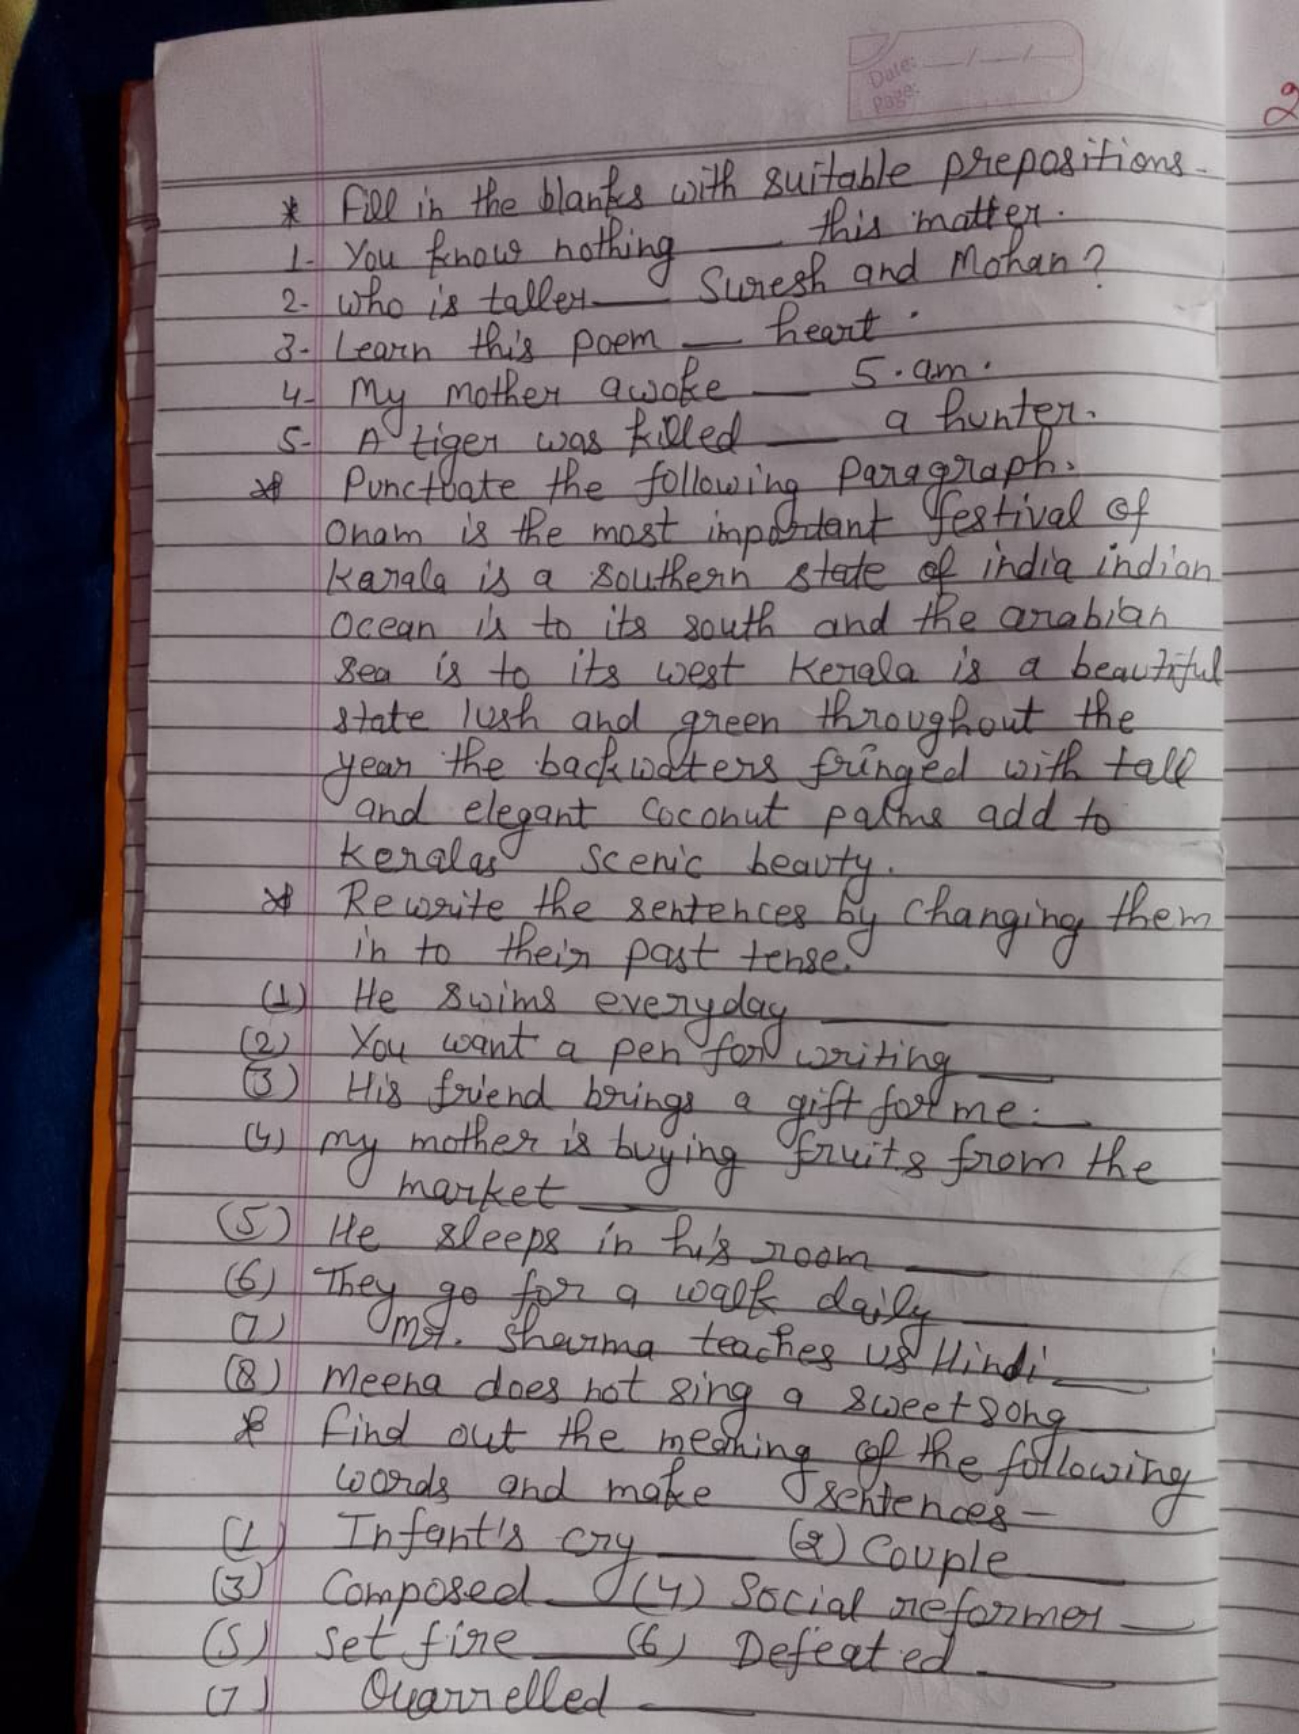 Date: __/__/__
Page:
2
* Fill in the blanks with suitable prepositions-
1- You know nothing ___ this matter.
2- who is taller ___ Suresh and Mohan?
3- Learn this poem ___ heart.
4- My mother awoke ___ 5.am.
5- A tiger was killed ___ a hunter.
* Punctuate the following Paragraph.
Onam is the most important festival of
Karala is a southern state of india indian
Ocean is to its south and the arabian
sea is to its west Kerala is a beautiful
state lush and green throughout the
year the backwaters fringed with tall
and elegant coconut palms add to
keralas scenic beauty.
* Rewrite the sentences by changing them
in to their past tense.
(1) He swims everyday ___
(2) You want a pen for writing ___
(3) His friend brings a gift for me. ___
(4) My mother is buying fruits from the
market ___
(5) He sleeps in his room ___
(6) They go for a walk daily ___
(7) Mr. Sharma teaches us Hindi ___
(8) Meena does not sing a sweet song
* Find out the meaning of the following
words and make sentences-
(1) Infant's cry ___ (2) Couple ___
(3) Composed ___ (4) Social reformer ___
(5) Set fire ___ (6) Defeated ___
(7) Quarrelled ___